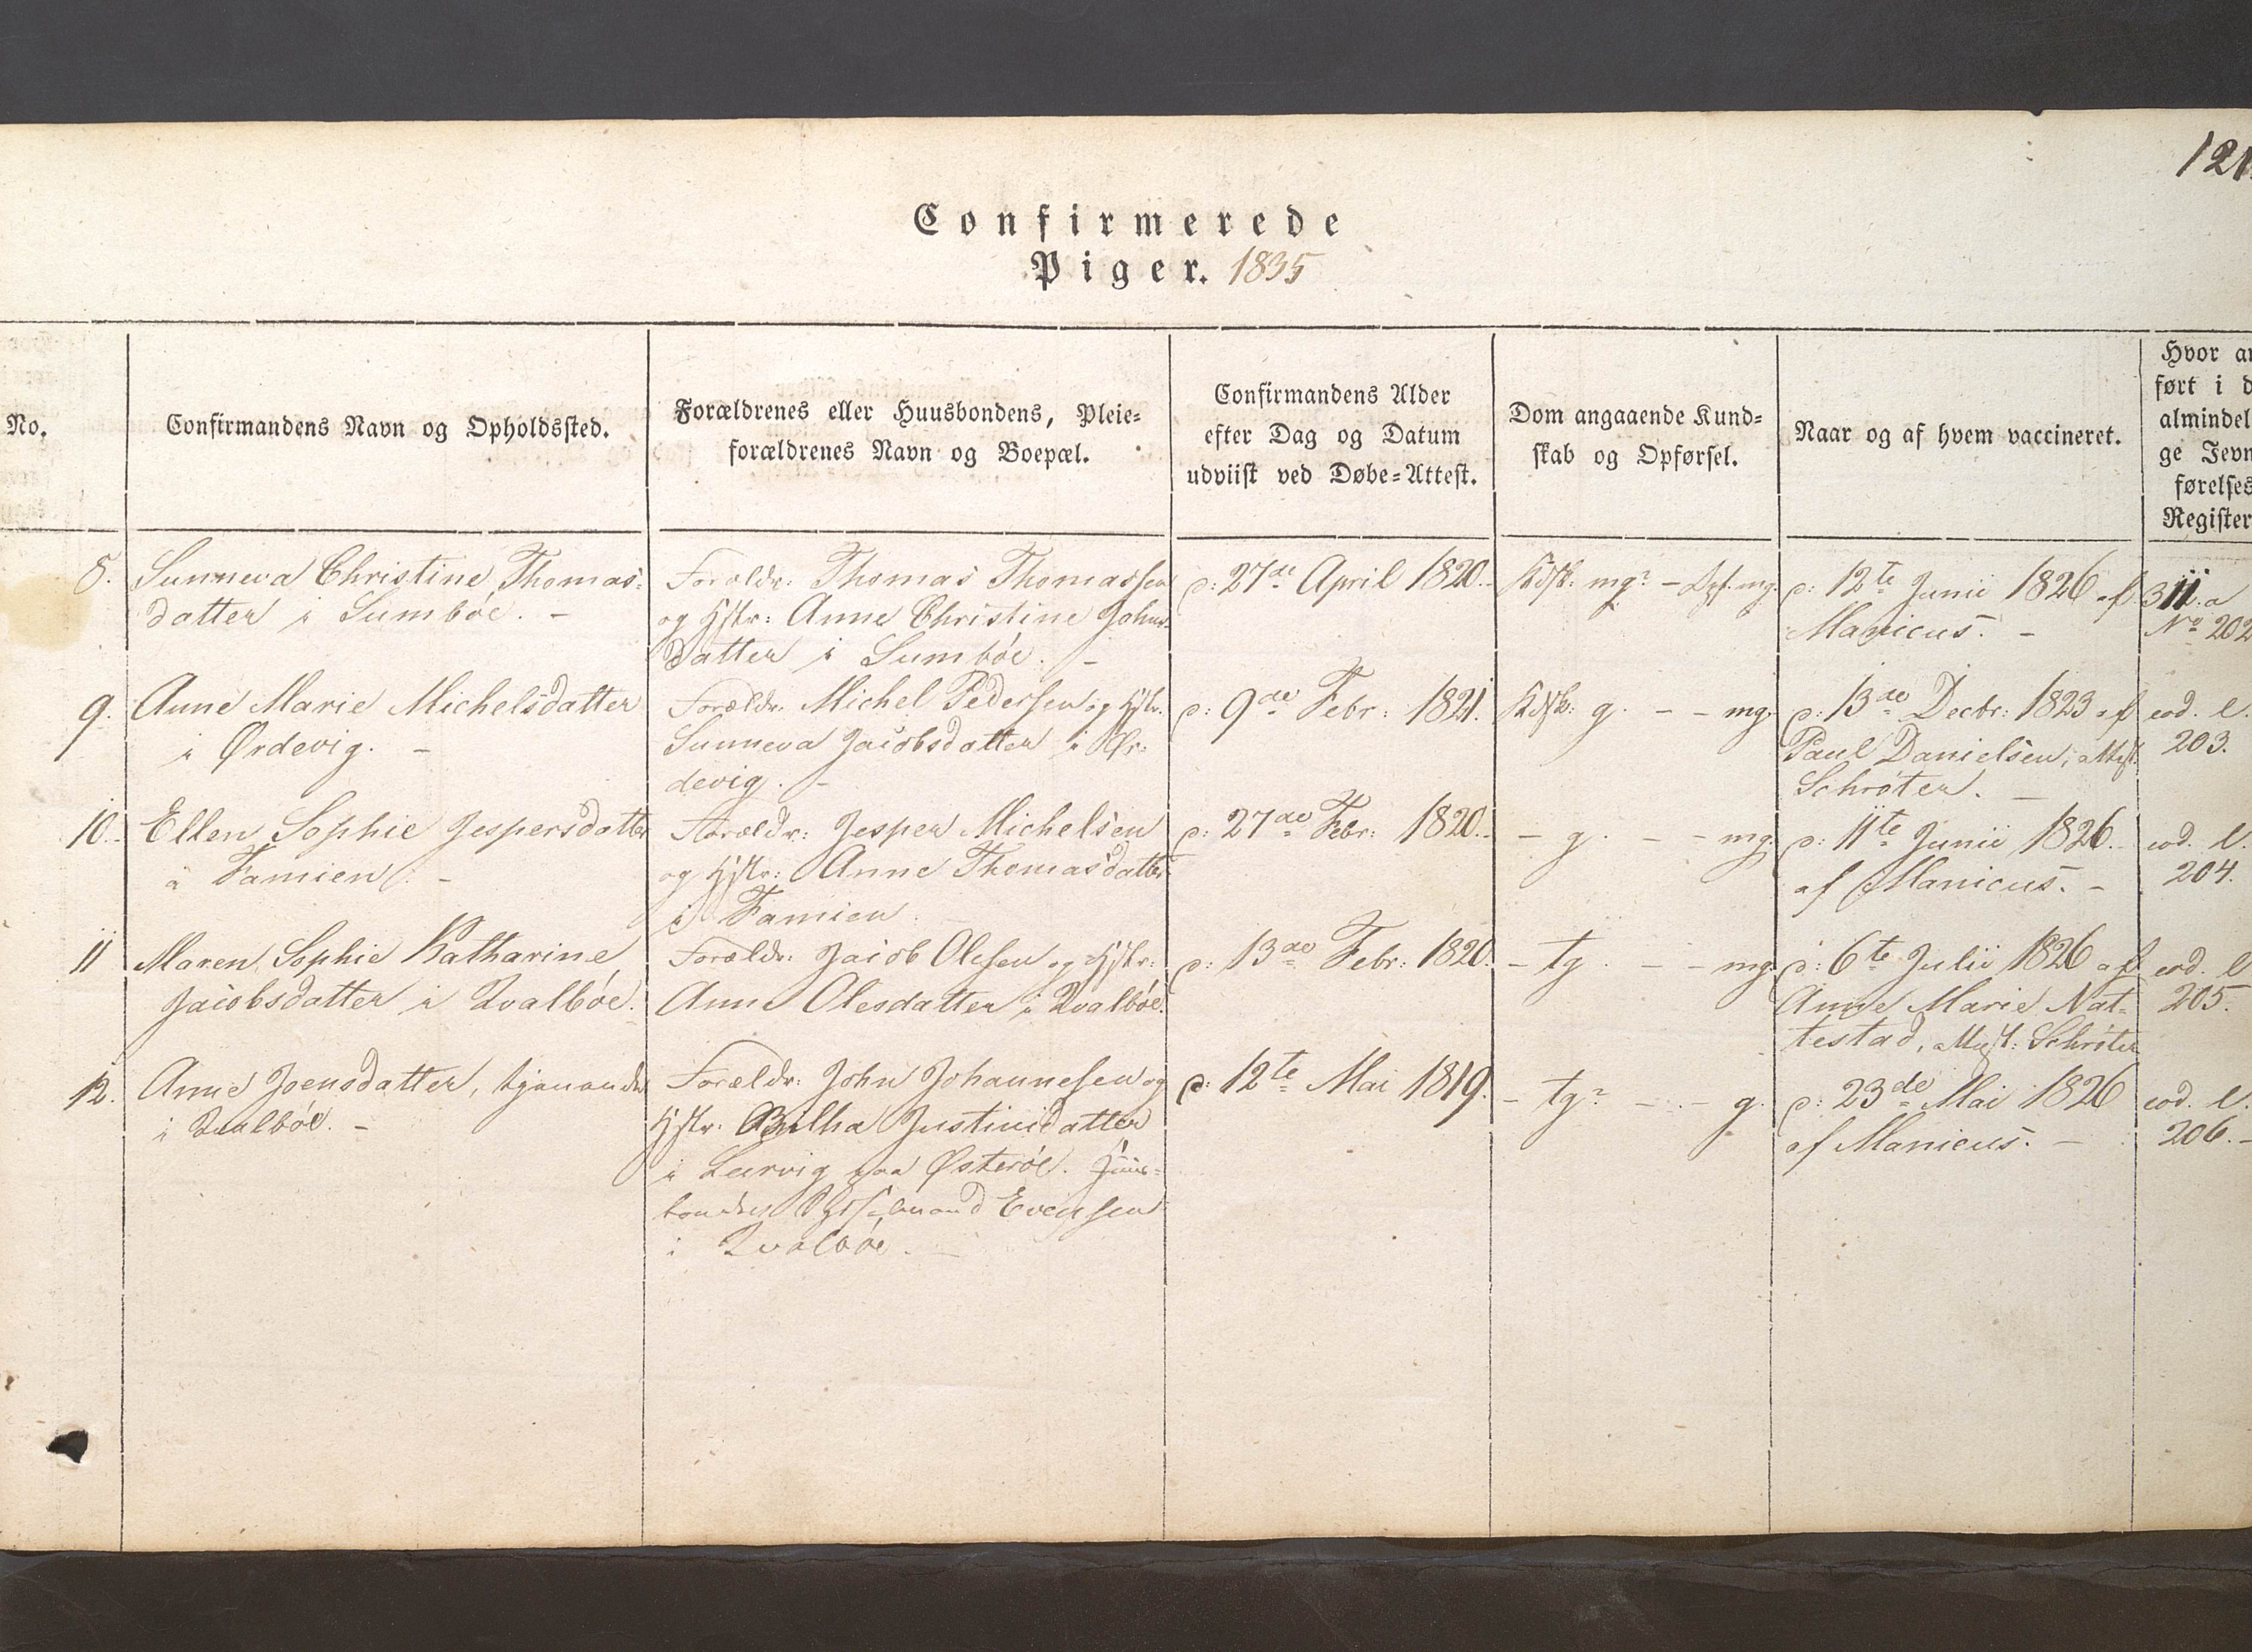 121.
Confirmerede
Piger. 1835
No.
Confirmandens Navn og Opholdssted.
Forældrenes eller Huusbondens, Pleie-
forældrenes Navn og Boepæl.
Confirmandens Alder
efter Dag og Datum
udviist ved Døbe-Attest.
Dom angaaende Kund-
skab og Opførsel.
Naar og af hvem vaccineret.
Hvor an
ført i d
almindel
ge Jevn
førelses
Register
8.
Sunneva Christine Thomas-
datter i Sumbøe. -
Foræld.: Thomas Thomassen
og Hstr: Anne Christine Johns-
datter i Sumbøe. -
d: 27de April 1820.
Kdsk: mg? - Opf. mg.
d: 12te Junii 1826 af
Manicus. -
No 202
9.
Anne Marie Michelsdatter
i Ørdevig. -
Foræld. Michel Pedersen og Hstr.
Sunneva Jacobsdatter i Ør-
devig. -
d: 9de Febr: 1821.
Kdsk: g. - - mg.
d: 13de Decbr: 1823 af
Paul Danielsen, attest.
Schrøter. -
eod. l.
203.
10.
Ellen Sophie Jespersdatter
i Famien. -
Foræld.: Jesper Michelsen
og Hstr: Anne Thomasdatter
i Famien.
d: 27de Febr: 1820.
- g. - - mg.
d: 11te Junii 1826.
af Manicus. -
eod. l.
204.
11
Maren Sophie Katharine
Jacobsdatter i Qvalbøe.
Foræld: Jacob Olesen og Hstr:
Anne Olesdatter i Qvalbøe.
d: 13de Febr: 1820.
- tg. - - mg.
d: 6te Julii 1826 af
Anne Marie Nat-
testad, attest: Schrøter
eod. l
205.
12.
Anne Joensdatter, tjenende
i Qvalbøe. -
Foræld: John Johannesen og
Hstr. Billha Justinidatter
i Larvig paa Østerøe. Huus-
bonden Evensen
i Qvalbøe. -
d: 12te Mai 1819.
- tg? - - g.
d: 23de Mai 1826
af Manicus. -
eod. l.
206. -